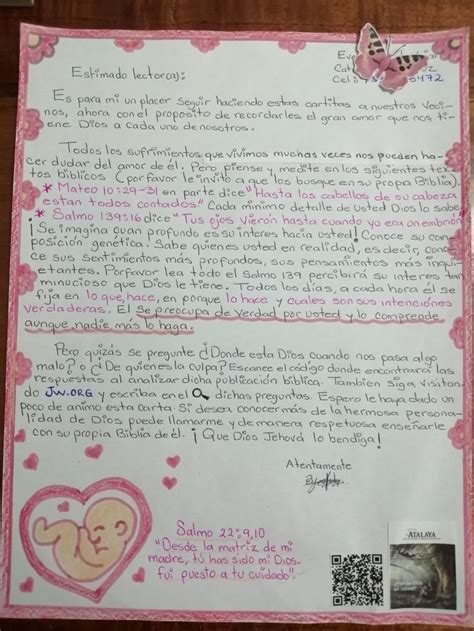 Estimado lector(a):
Cel:
Es para mi un placer seguir haciendo estas cartitas a nuestros veci-
nos, ahora con el proposito de recordarles el gran amor que nos ti-
ene Dios a cada uno de nosotros.
Todos los sufrimientos que vivimos muchas veces nos pueden ha-
cer dudar del amor de él. Pero piense y medite en los siguientes tex-
tos biblicos (porfavor le invito a que los busque en su propia Biblia).
* Mateo 10:29-31 en parte dice "Hasta los cabellos de su cabeza
estan todos contados" Cada minimo detalle de usted Dios lo sabe
* Salmo 139:16 dice "Tus ojos vieron hasta cuando yo era un embrión"
¡Se imagina cuan profundo es su interes hacia usted! Conoce su com-
posición genética. Sabe quienes usted en realidad, es decir, cono-
ce sus sentimientos más profundos, sus pensamientos más inqui-
etantes. Porfavor lea todo el Salmo 139 percibirá su interes tan
minucioso que Dios le tiene. Todos los días, a cada hora él se
fija en lo que hace, en porque lo hace y cuales son sus intenciónes
verdaderas. El Se preocupa de Verdad por usted y lo comprende
aunque nadie más lo haga.
Pero quizás se pregunte ¿Donde esta Dios cuando nos pasa algo
malo? o ¿De quien es la culpa? Escanee el código donde encontrará las
respuestas al analizar dicha publicación biblica. Tambien siga visitan-
do JW.ORG y escriba en el dichas preguntas. Espero le haya dado un
poco de animo esta carta Si desea conocer más de la hermosa persona-
lidad de Dios puede llamarme y de manera respetuosa enseñarle
con su propia Biblia de él. ¡Que Dios Jehová lo bendiga!
Atentamente
Salmo 22:9,10
"Desde la matriz de mi
madre, tú has sido mi Dios.
fui puesto a tu cuidado".
ATALAYA